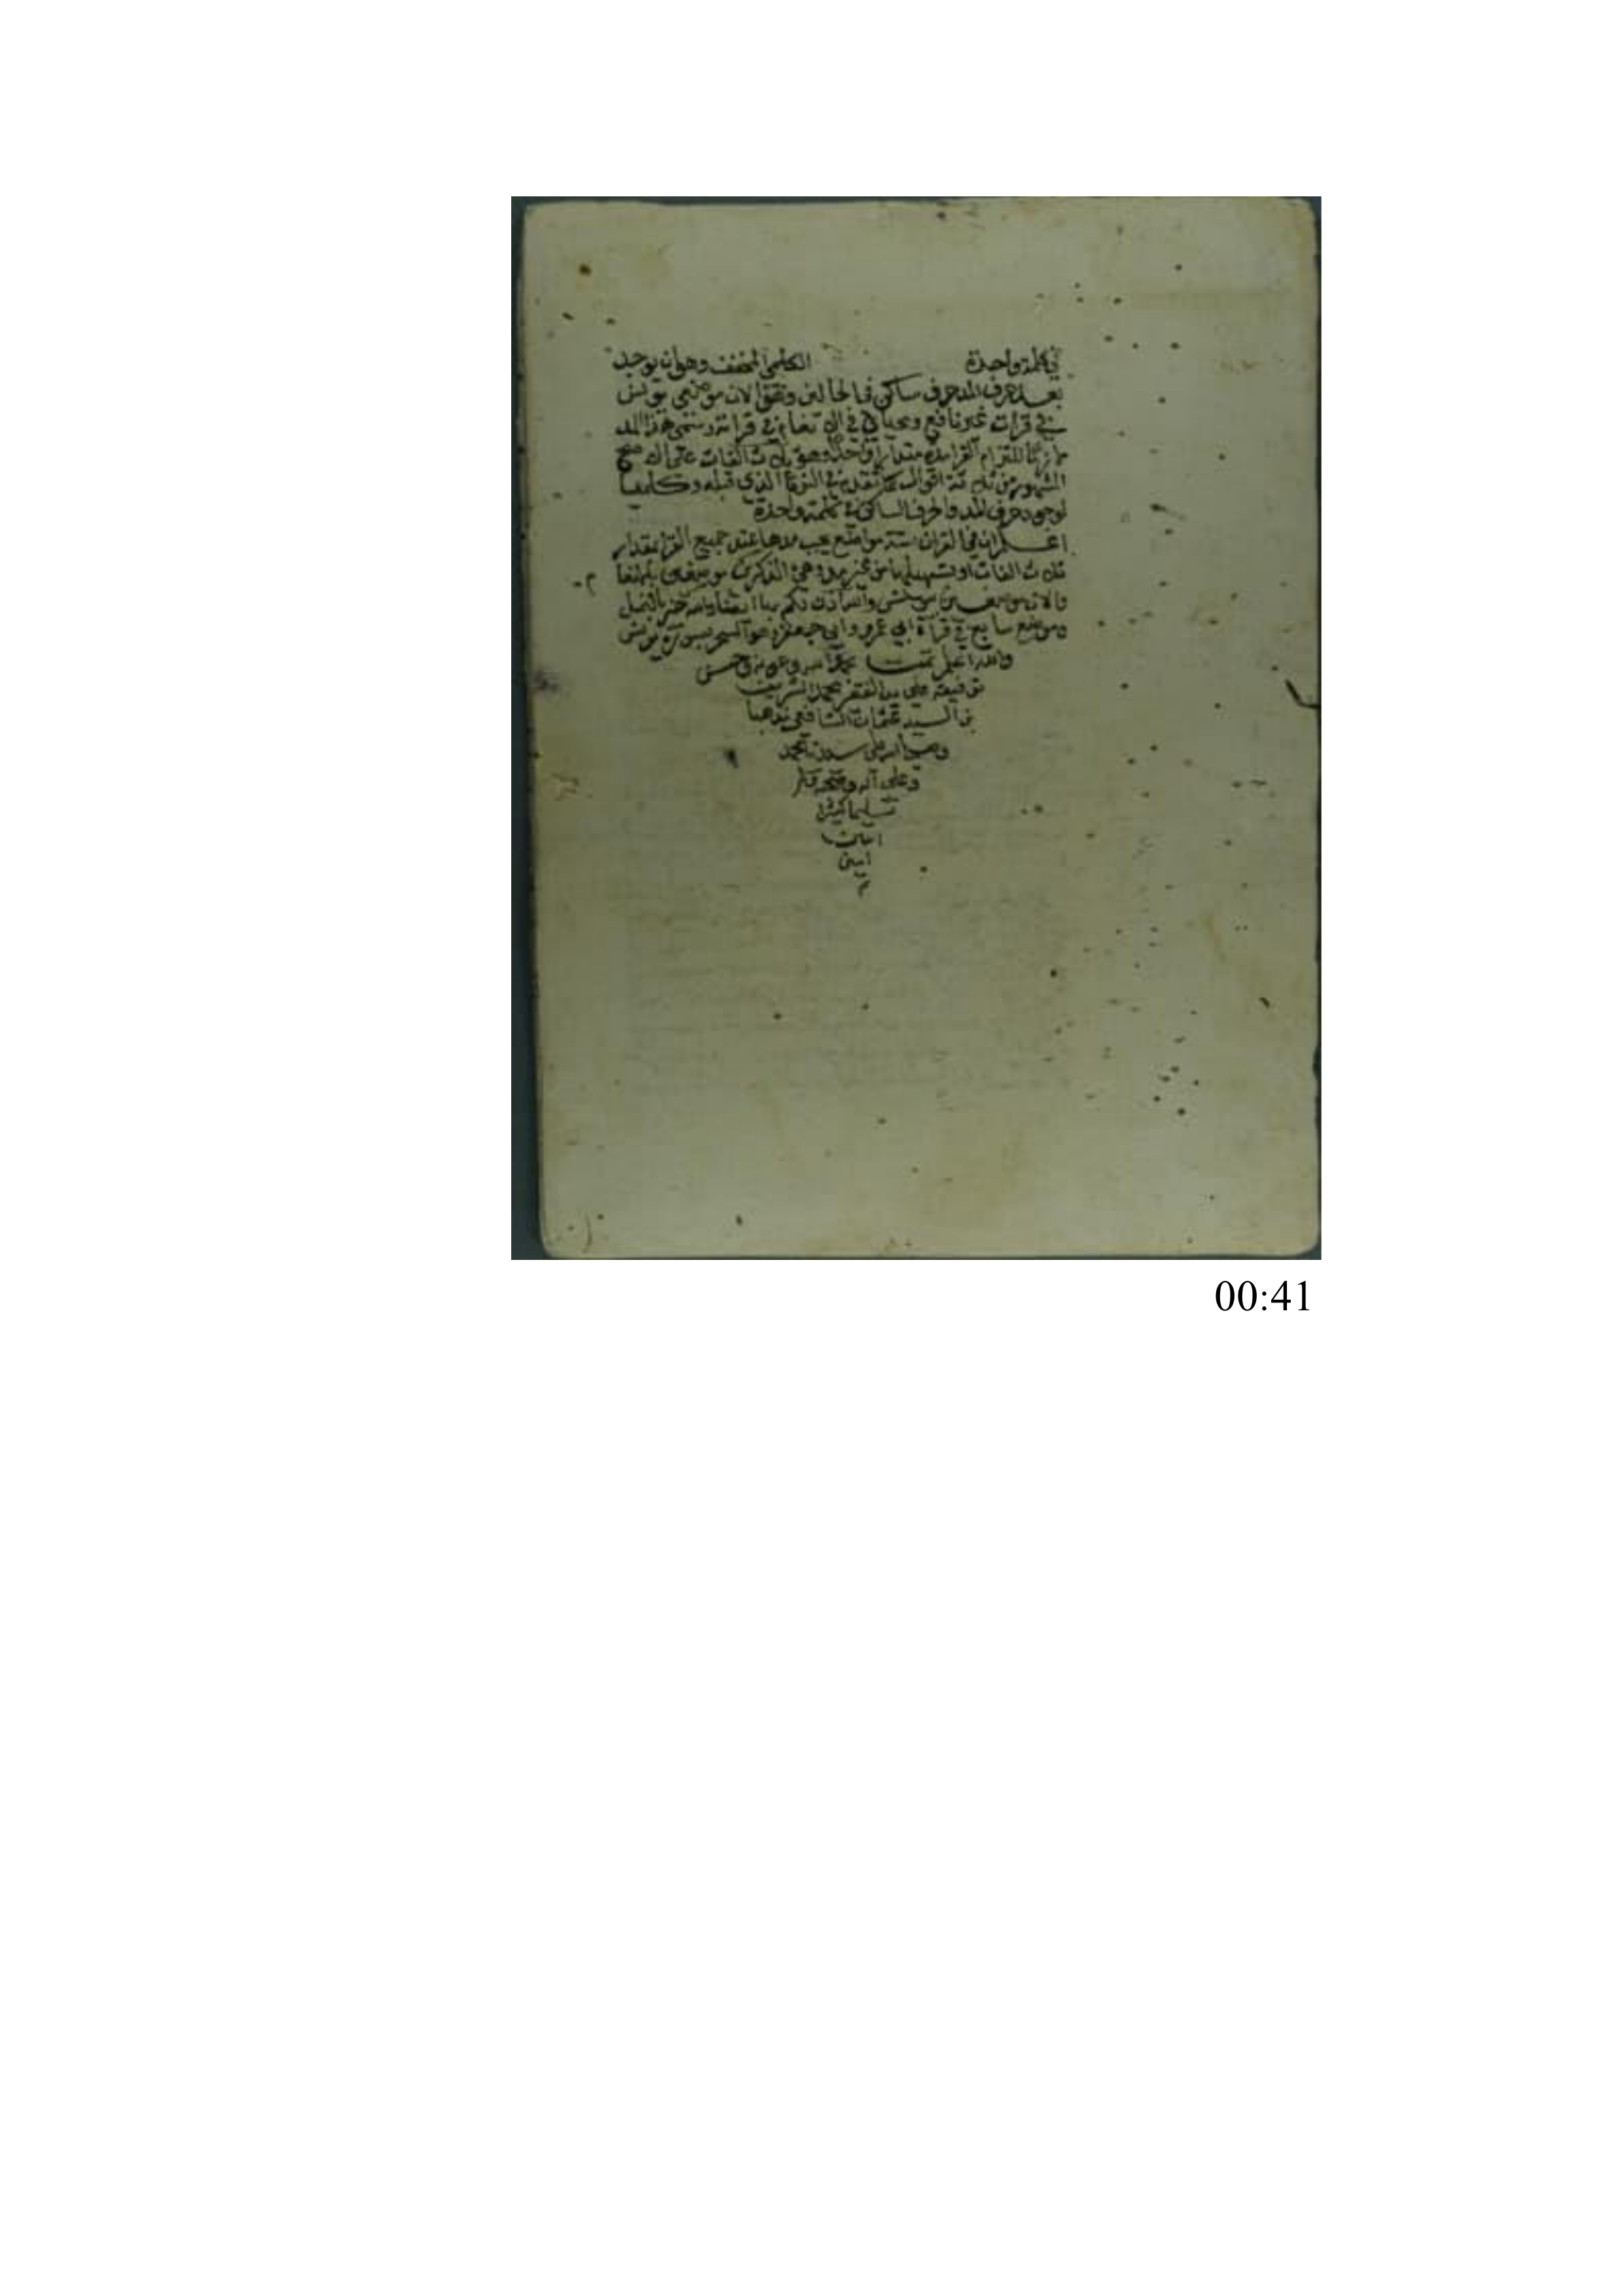 في كلمة واحدة الكلمي المخفف وهو ان يوجد
بعد حرف المد حرف ساكن في الحالين ونحو الان موضعي يونس
في قرات غير نافع ومحياي في الانعام في قراته وسمى هذا المد
لازما لالتزام القرا مده مقدارا واحدا وهو ثلاث الفات على الاصح
المشهور من ثلاثة اقوال كما تقدم في النوع الذي قبله وكلميا
لوجود حرف المد والحرف الساكن في كلمة واحدة
اعلم ان في القران ستة مواضع يجب مدها عند جميع القرا مقدار
ثلاث الفات او تسهيلها من غير مد وهي الذكرين موضعين بالانعام
والان موضعين بيونس والله اذن لكم بها ايضا والله خير بالنمل
وموضع سابع في قرآة ابي عمرو وابي جعفر وهو السحر بسورة يونس
والله اعلم تمت بحمد الله وعونه وحسن
توفيقه على يد الفقير محمد الشريف
بن السيد عثمان الشافعي مذهبا
وصلى الله على سيدنا محمد
وعلى آله وصحبه وسلم
تسليما كثيرا
امين
امين
م
00:41